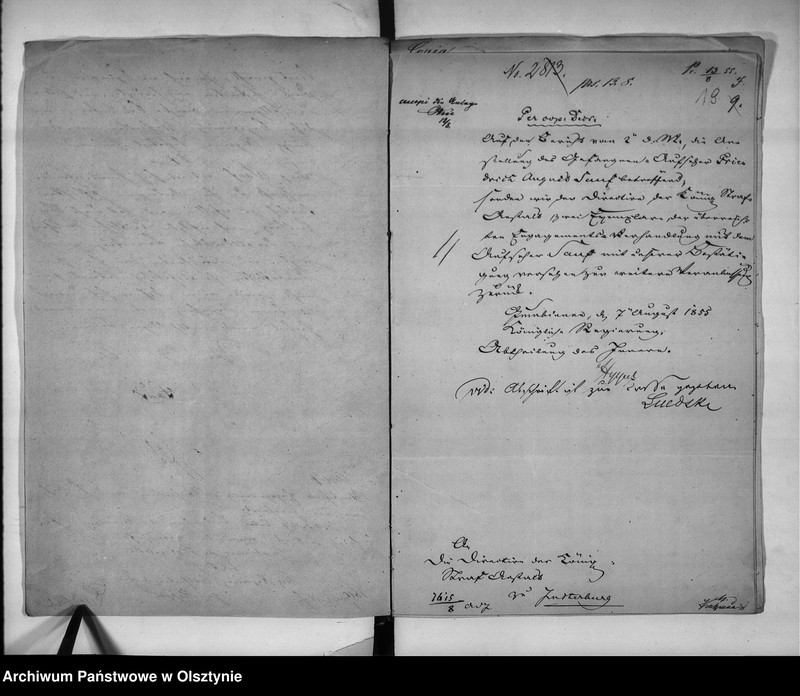 Copia
No. 2813.
pr. 13. 8.
P. 13/8 55.
19 9.
Auf den Bericht vom 2t d. Mts, die An-
stellung des Gefangenen-Aufsehers Frie-
drich August Sauf betreffend,
senden wir der Direction der König Straf-
Anstalt zwei Exemplare der überreich-
ten Engagements-Verhandlung mit dem
Aufseher Sauf mit unserer Bestäti-
gung versehen zur weitern Veranlassung
zurück.
Gumbinnen, d 7t August 1855
Königliche Regierung,
Abtheilung des Innern.
Abschrift ist zur gegeben
An
Die Direction der König
Straf Anstalt
zu Insterburg
Archiwum Państwowe w Olsztynie